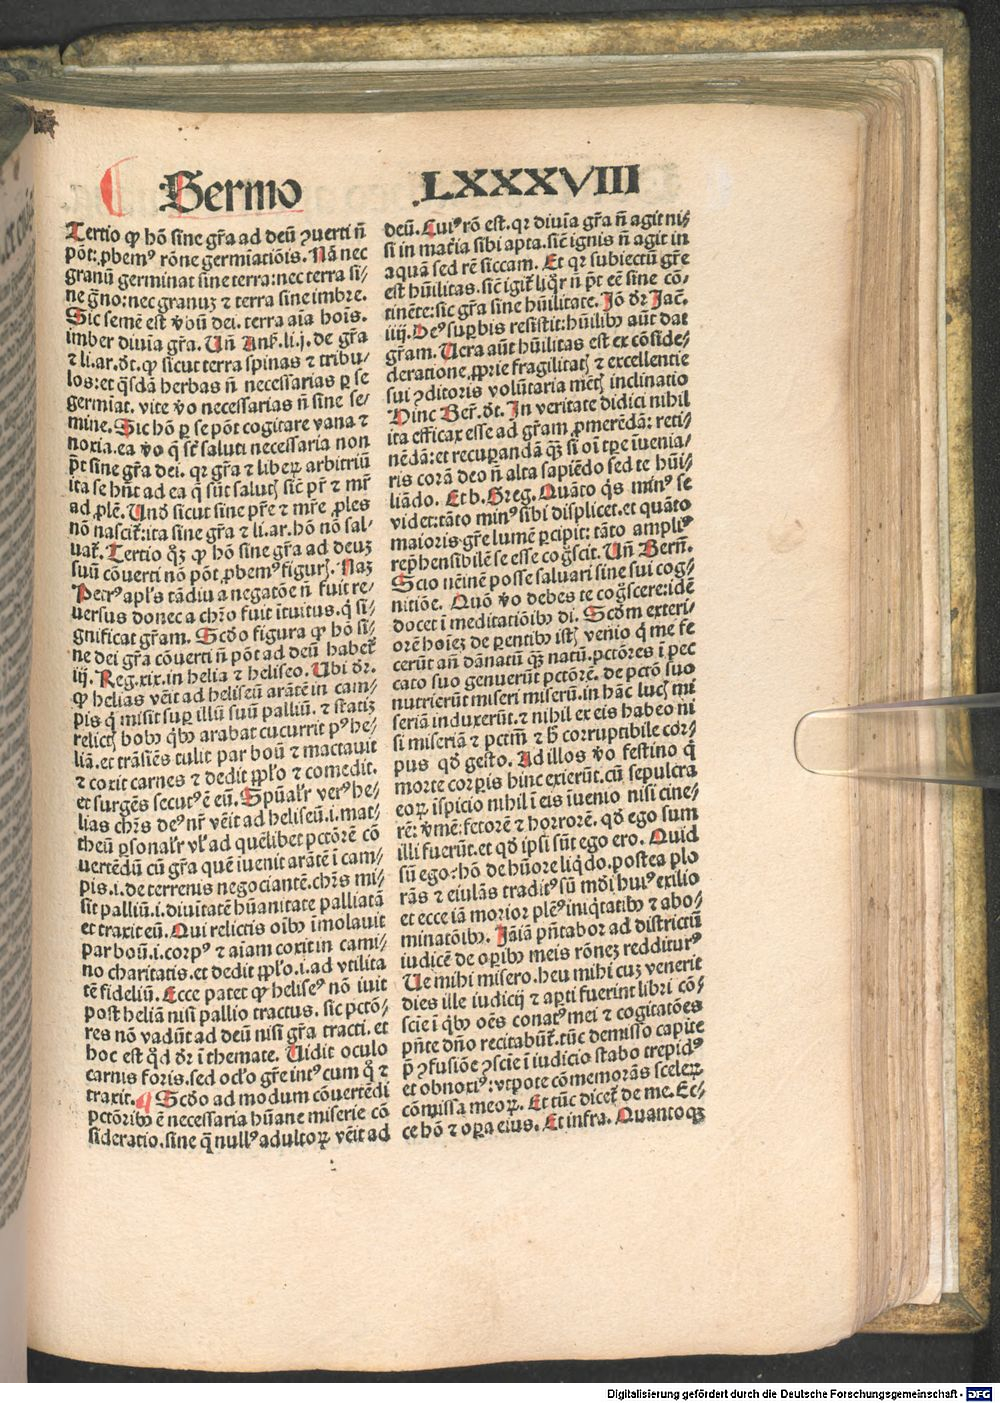 Sermo LXXXVIII
Tertio ꝙ hõ sine gr̃a ad deũ ꝯuerti ñ
põt: ꝓbem⁹ rõne germiatiõis. Nã nec
granũ germinat sine terra: nec terra si⸗
ne g̃no: nec granuꝫ ⁊ terra sine imbre.
Sic semẽ est v̾bũ dei. terra aĩa hoĩs.
imber diuĩa gr̃a. Uñ Anẜ. li. j. de gr̃a
⁊ li. ar. dt̃. ꝙ sicut terra spinas ⁊ tribu⸗
los: et q̃sdã herbas ñ necessarias ꝑ se
germiat. vite v̾o necessarias ñ sine se⸗
mine. Sic hõ ꝑ se põt cogitare vana ⁊
noxia. ea v̾o q̃ st̃ saluti necessaria non
pt̃ sine gr̃a dei. qꝛ gr̃a ⁊ liberꝝ arbitriũ
ita se hñt ad ea q̃ sũt salutꝭ sic̃ pr̃ ⁊ mr̃
ad ꝓlẽ. Und̾ sicut sine pr̃e ⁊ mr̃e ꝓles
nõ nascit᷑: ita sine gr̃a ⁊ li. ar. hõ nõ sal⸗
uat᷑. Tertio qꝫ ꝙ hõ sine gr̃a ad deuꝫ
suũ cõuerti nõ põt ꝓbem⁹ figurꝭ. Naꝫ
Petr⁹ apl̃s tãdiu a negatõe ñ fuit re⸗
uersus donec a chr̃o fuit ĩtuitus. q̃ si⸗
gnificat gr̃am. Scd̾o figura ꝙ hõ si⸗
ne dei gr̃a cõuerti ñ põt ad deũ habet᷑
iij. Reg. xix. in helia ⁊ heliseo. Ubi dr̃.
ꝙ helias vẽit ad heliseũ arãtẽ in cam⸗
pis q̃ misit suꝑ illũ suũ palliũ. ⁊ statiꝫ
relictꝭ bobꝰ q̃bꝰ arabat cucurrit p⁹ he⸗
liã. et trãsiẽs tulit par boũ ⁊ mactauit
⁊ coxit carnes ⁊ dedit ppl̾o ⁊ comedit.
et surgẽs secut⁹ ẽ eũ. Spũal̾r ver⁹ he⸗
lias chr̃s de⁹ nr̃ vẽit ad heliseũ. i. mat⸗
theũ ꝑsonal̾r vl̾ ad quẽlibet pctõrẽ cõ
uertẽdũ cũ gr̃a quẽ iuenit arãtẽ ĩ cam⸗
pis. i. de terrenis negociantẽ. chr̃s mi⸗
sit palliũ. i. diuĩtatẽ hũanitate palliatã
et traxit eũ. Qui relictis oĩbꝰ ĩmolauit
par boũ. i. corp⁹ ⁊ aĩam coxit in cami⸗
no charitatis. et dedit ppl̾o. i. ad vtilita
tẽ fideliũ. Ecce patet ꝙ helise⁹ nõ iuit
post heliã nisi pallio tractus. sic pctõ⸗
res nõ vadũt ad deũ nisi gr̃a tracti. et
hoc est q̃d dr̃ ĩ themate. Uidit oculo
carnis foris. sed ocl̾o gr̃e int⁹ cum q̃ ⁊
traxit. ¶ Scd̾o ad modum cõuertẽdi
pctõribꝰ ẽ necessaria hũane miserie cõ
sideratio. sine q̃ null⁹ adultoꝝ vẽit ad
deũ. Cui⁹ rõ est. qꝛ diuĩa gr̃a ñ agit ni⸗
si in mat̾ia sibi apta. sic̃ ignis ñ agit in
aquã sed rẽ siccam. Et qꝛ subiectũ gr̃e
est hũilitas. sic̃ igit᷑ liq̃r ñ pt̃ eẽ sine cõ⸗
tinẽte: sic gr̃a sine hũilitate. Jõ dr̃ Jac̃.
iiij. De⁹ suꝑbis resistit: hũilibꝰ aũt dat
gr̃am. Uera aũt hũilitas est ex cõside⸗
deratione ꝓprie fragilitatꝭ ⁊ excellentie
sui ꝯditoris volũtaria mẽtꝭ inclinatio
Hinc Ber̃. dt̃. In veritate didici nihil
ita efficax esse ad gr̃am ꝓmerẽdã: reti⸗
nẽdã: et recuꝑandã qꝫ si oĩ tꝑe ĩuenia⸗
ris corã deo ñ alta sapiẽdo sed te hũi⸗
liãdo. Et b. Greg. Quãto q̃s min⁹ se
videt: tãto min⁹ sibi displicet. et quãto
maioris gr̃e lumẽ ꝑcipit: tãto ampli⁹
rep̃hensibilẽ se esse cog̃scit. Uñ Bern̾.
Scio neminẽ posse saluari sine sui cog⸗
nitiõe. Quõ v̾o debes te cog̃scere: idẽ
docet ĩ meditatiõibꝰ di. Scd̾m exteri⸗
orẽ hoĩeꝫ de ꝑentibꝰ istꝭ venio q̃ me fe
cerũt añ dãnatũ qꝫ natũ. pctõres ĩ pec
cato suo genuerũt pctõrẽ. de pctõ suo
nutrierũt miseri miserũ. in hãc lucꝭ mi
seriã induxerũt. ⁊ nihil ex eis habeo ni
si miseriã ⁊ pctm̃ ⁊ h̾ corruptibile cor⸗
pus qd̾ gesto. Ad illos v̾o festino q̃
morte corꝑis hinc exierũt. cũ sepulcra
eoꝝ ĩspicio nihil ĩ eis ĩuenio nisi cine⸗
rẽ: v̾mẽ: fetorẽ ⁊ horrorẽ. qd̾ ego sum
illi fuerũt. et qd̾ ipsi sũt ego ero. Quid
sũ ego? hõ de hũore liq̃do. postea plo
rãs ⁊ eiulãs tradit⁹ sũ mõi hui⁹ exilio
et ecce iã morior plẽ⁹ iniq̃tatibꝰ ⁊ abo⸗
minatõibꝰ. Jãiã pñtabor ad districtũ
iudicẽ de oꝑibꝰ meis rõneꝫ redditur⁹
Ue mihi misero. heu mihi cuꝫ venerit
dies ille iudicij ⁊ aꝑti fuerint libri cõ⸗
scie ĩ q̃bꝰ oẽs conat⁹ mei ⁊ cogitatões
pñte dño recitabũt᷑. tũc demisso capite
p̃ ꝯfusiõe ꝯscie ĩ iudicio stabo trepid⁹
et obnoxi⁹: vtpote cõmemorãs sceleꝝ
cõmissa meoꝝ. Et tũc dicet᷑ de me. Ec⸗
ce hõ ⁊ oꝑa eius. Et infra. Quantoqꝫ
Digitalisierung gefördert durch die Deutsche Forschungsgemeinschaft - DFG